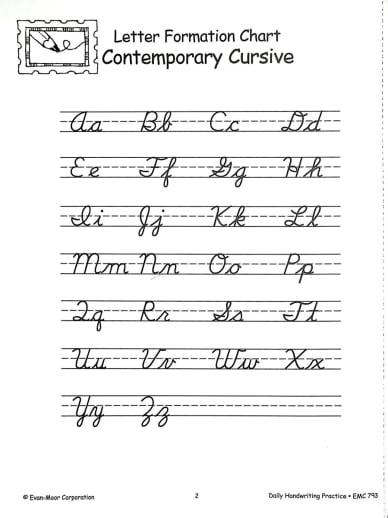 Letter Formation Chart
Contemporary Cursive
Aa Bb Cc Dd
Ee Ff Gg Hh
Ii Jj Kk Ll
Mm Nn Oo Pp
Qq Rr Ss Tt
Uu Vv Ww Xx
Yy Zz
© Evan-Moor Corporation 2 Daily Handwriting Practice • EMC 793